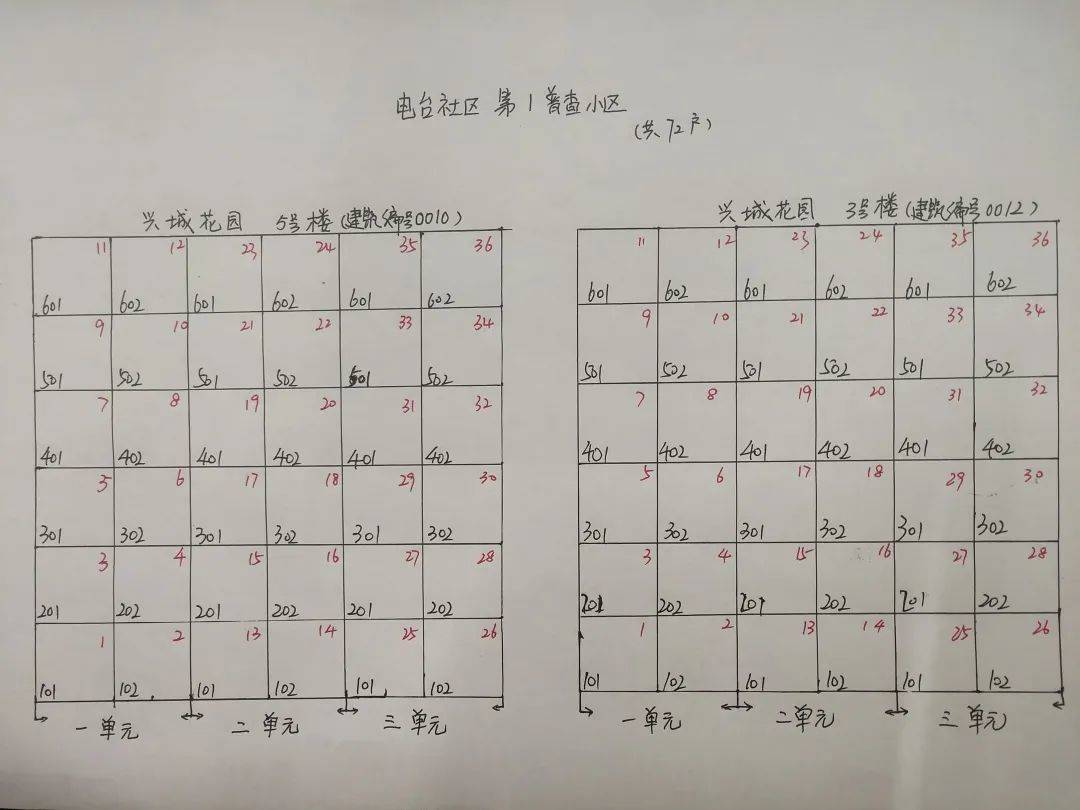 电台社区 第1普查小区
(共72户)
兴城花园 5号楼(建筑编号0010)
11 12 23 24 35 36
601 602 601 602 601 602
9 10 21 22 33 34
501 502 501 502 501 502
7 8 19 20 31 32
401 402 401 402 401 402
5 6 17 18 29 30
301 302 301 302 301 302
3 4 15 16 27 28
201 202 201 202 201 202
1 2 13 14 25 26
101 102 101 102 101 102
一单元 二单元 三单元
兴城花园 3号楼(建筑编号0012)
11 12 23 24 35 36
601 602 601 602 601 602
9 10 21 22 33 34
501 502 501 502 501 502
7 8 19 20 31 32
401 402 401 402 401 402
5 6 17 18 29 30
301 302 301 302 301 302
3 4 15 16 27 28
201 202 201 202 201 202
1 2 13 14 25 26
101 102 101 102 101 102
一单元 二单元 三单元